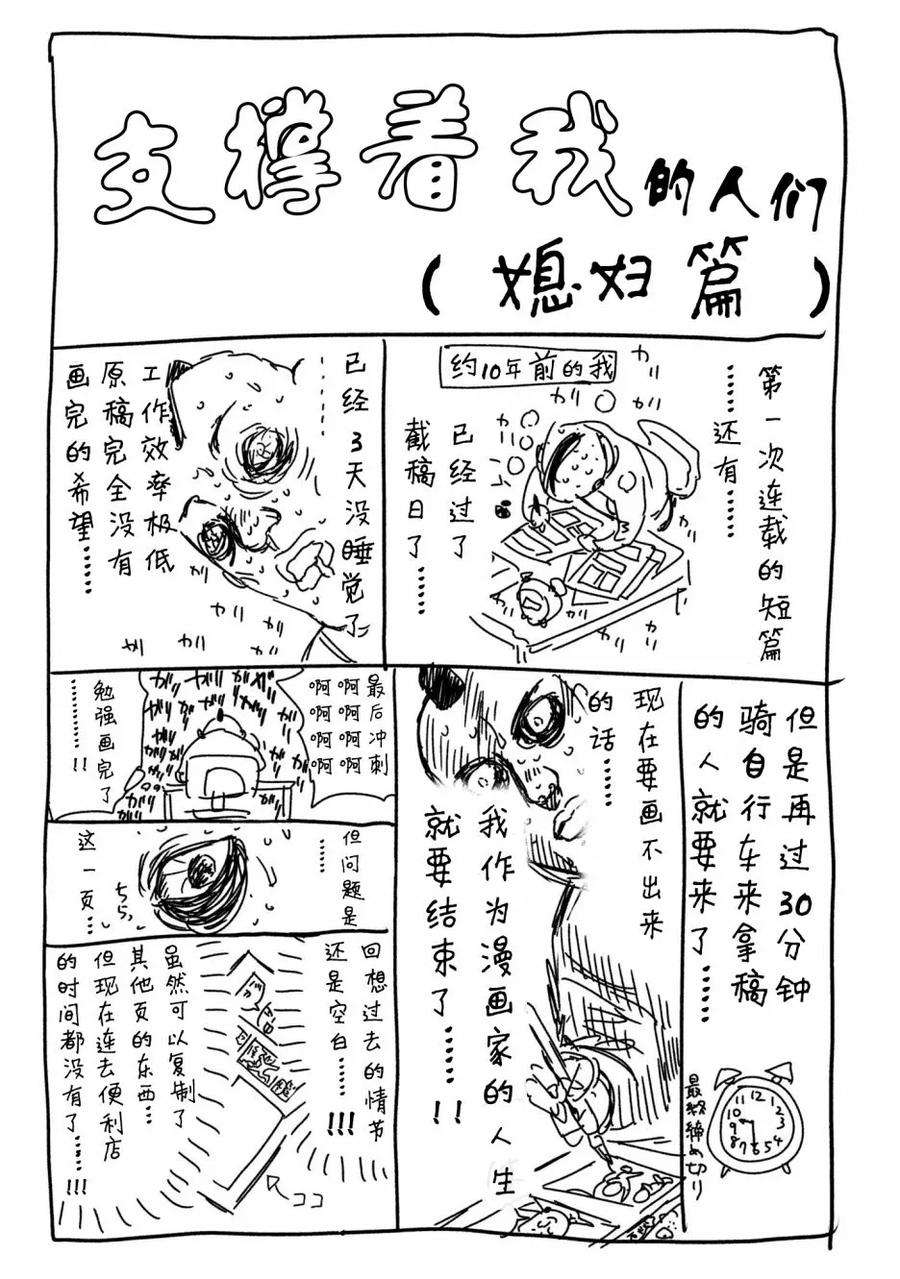 支撑着我的人们
(媳妇篇)
第一次连载的短篇
……还有……
约10年前的我
已经过了
截稿日了……
ガリ
ガリ
ガリ
ガリ
ガリ
ガリ
……已经3天没睡觉了
工作效率极低
原稿完全没有
画完的希望……
ガリ
ガリ
ガリ
ガリ
但是再过30分钟
骑自行车来拿稿
的人就要来了……
11 12 1
10 2
9 3
8 7 6 5 4
最終締め切り
现在要画不出来
的话……
我作为漫画家的人生
就要结束了……!!
最后冲刺
啊啊啊啊
啊啊啊啊
ガリ
ガリ
ガリ
ガリ
勉强画完了
……!!
但问题是
……
这一页…
ちら
回想过去的情节
还是空白……!!!
虽然可以复制了
其他页的东西…
但现在连去便利店
的时间都没有了…!!!
ココ